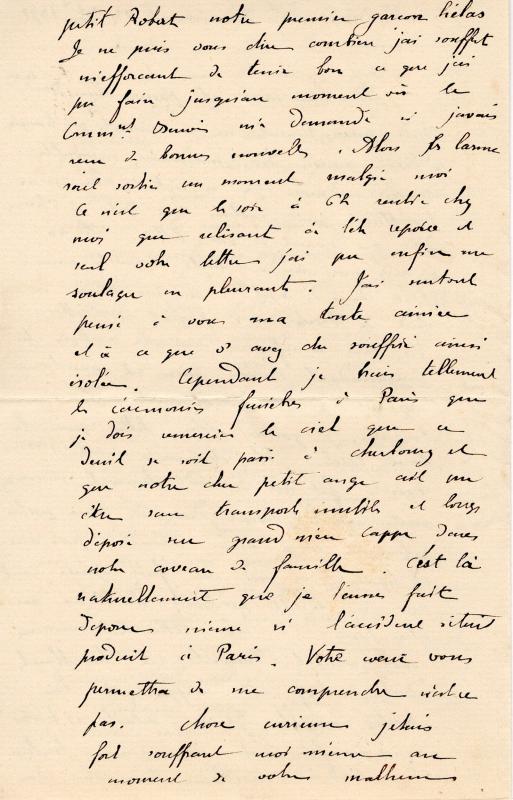 petit Robert notre premier garçon hélas
Je ne puis vous dire combien j'ai souffert
m'efforçant de tenir bon ce que j'ai
pu faire jusqu'au moment où le
Comm<sup>nt</sup> m'a demandé si j'avais
reçu de bonnes nouvelles. Alors les larmes
sont sorties un moment malgré moi
Ce n'est que le soir à 6h rentré chez
moi que relisant à tête reposée et
seul votre lettre j'ai pu enfin me
soulager en pleurant. J'ai surtout
pensé à vous ma toute aimée
et à ce que v avez du souffrir ainsi
isolée. Cependant je hais tellement
les cérémonies funèbres à Paris que
je dois remercier le ciel que ce
deuil se soit passé à Cherbourg et
que notre cher petit ange ait pu
être sans transports inutiles et longs
déposé sur grand mère dans
notre caveau de famille. C'est là
naturellement que je l'eusse fait
déposer même si l'accident s'était
produit à Paris. Votre cœur vous
permettra de me comprendre n'est ce
pas. Chose curieuse j'étais
fort souffrant moi même au
moment de votre malheur